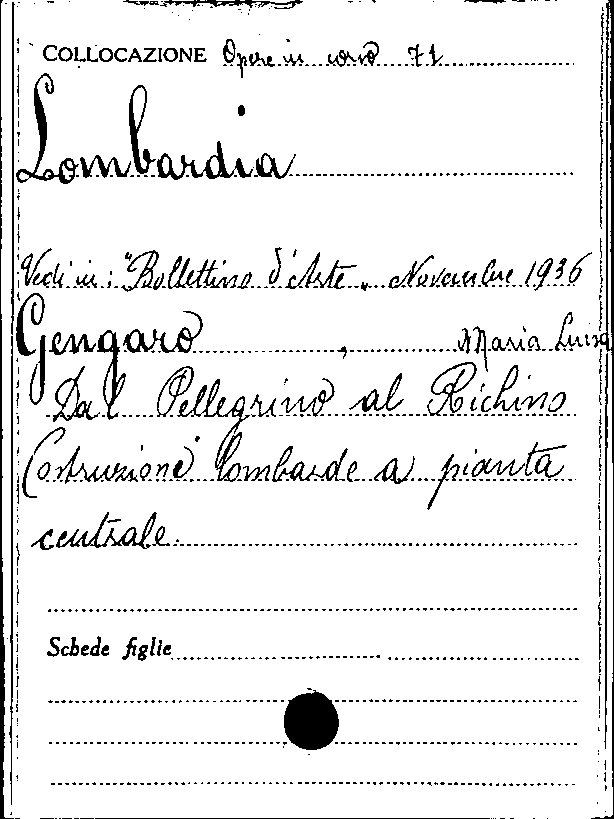 COLLOCAZIONE Opere in corso 71
Lombardia
Vedi in: "Bollettino d'Arte„ Novembre 1936
Gengaro, Maria Luisa
Dal Pellegrino al Richino
Costruzione lombarde a pianta
centrale.
Schede figlie